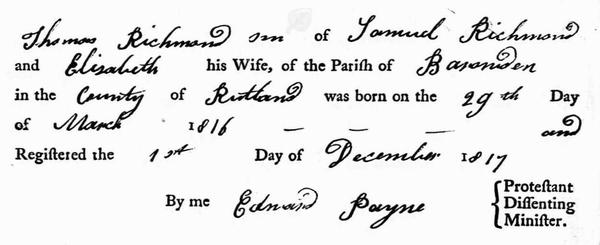 Thomas Richmond son of Samuel Richmond
and Elisabeth his Wife, of the Parish of Barowden
in the County of Rutland was born on the 29th Day
of March 1816 — — — — and
Registered the 1st Day of December 1817
By me Edward Payne { Protestant
Dissenting
Minister.